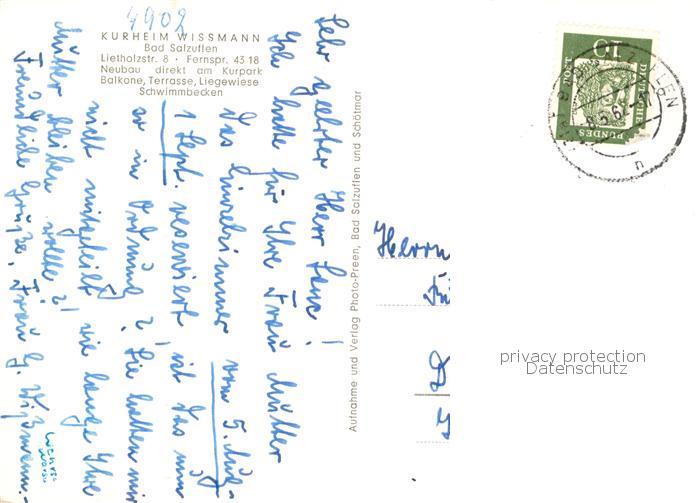 4902
KURHEIM WISSMANN
Bad Salzuflen
Lietholzstr. 8 · Fernspr. 43 18
Neubau direkt am Kurpark
Balkone, Terrasse, Liegewiese
Schwimmbecken
Sehr geehrter Herr
Ich hatte für Ihre Frau Mutter
das Einzelzimmer vom 5. Aug.-
1 Sept. reserviert, ist das nun
so in Ordnung? Sie hatten mir
nicht mitgeteilt wie lange Ihre
Mutter bleiben wollte?!
Freundliche Grüße, Frau G. Wißmann.-
Aufnahme und Verlag Photo-Preen, Bad Salzuflen und Schötmar
Herrn
10
DEUTSCHE
BUNDES
privacy protection
Datenschutz